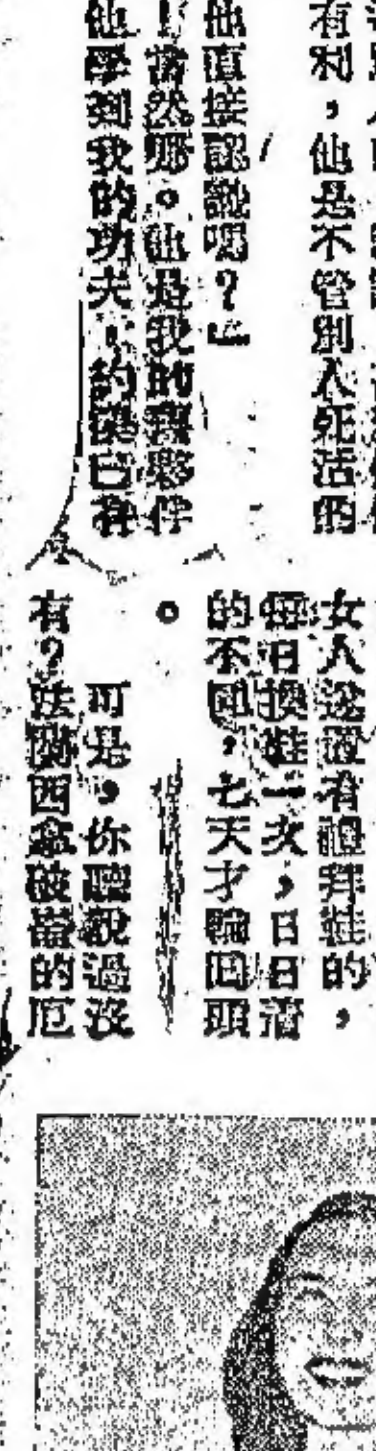 有利，他是不管別人死活的
他直接認識嗎？」
「當然哪。他是我的舊夥伴
他學到我的功夫，約莫已有
女人還有禮拜鞋的，
每日換鞋一次，日日著
的不同，七天才輪回頭
。
可是，你聽說過沒
有？法蘭西拿破崙的厄